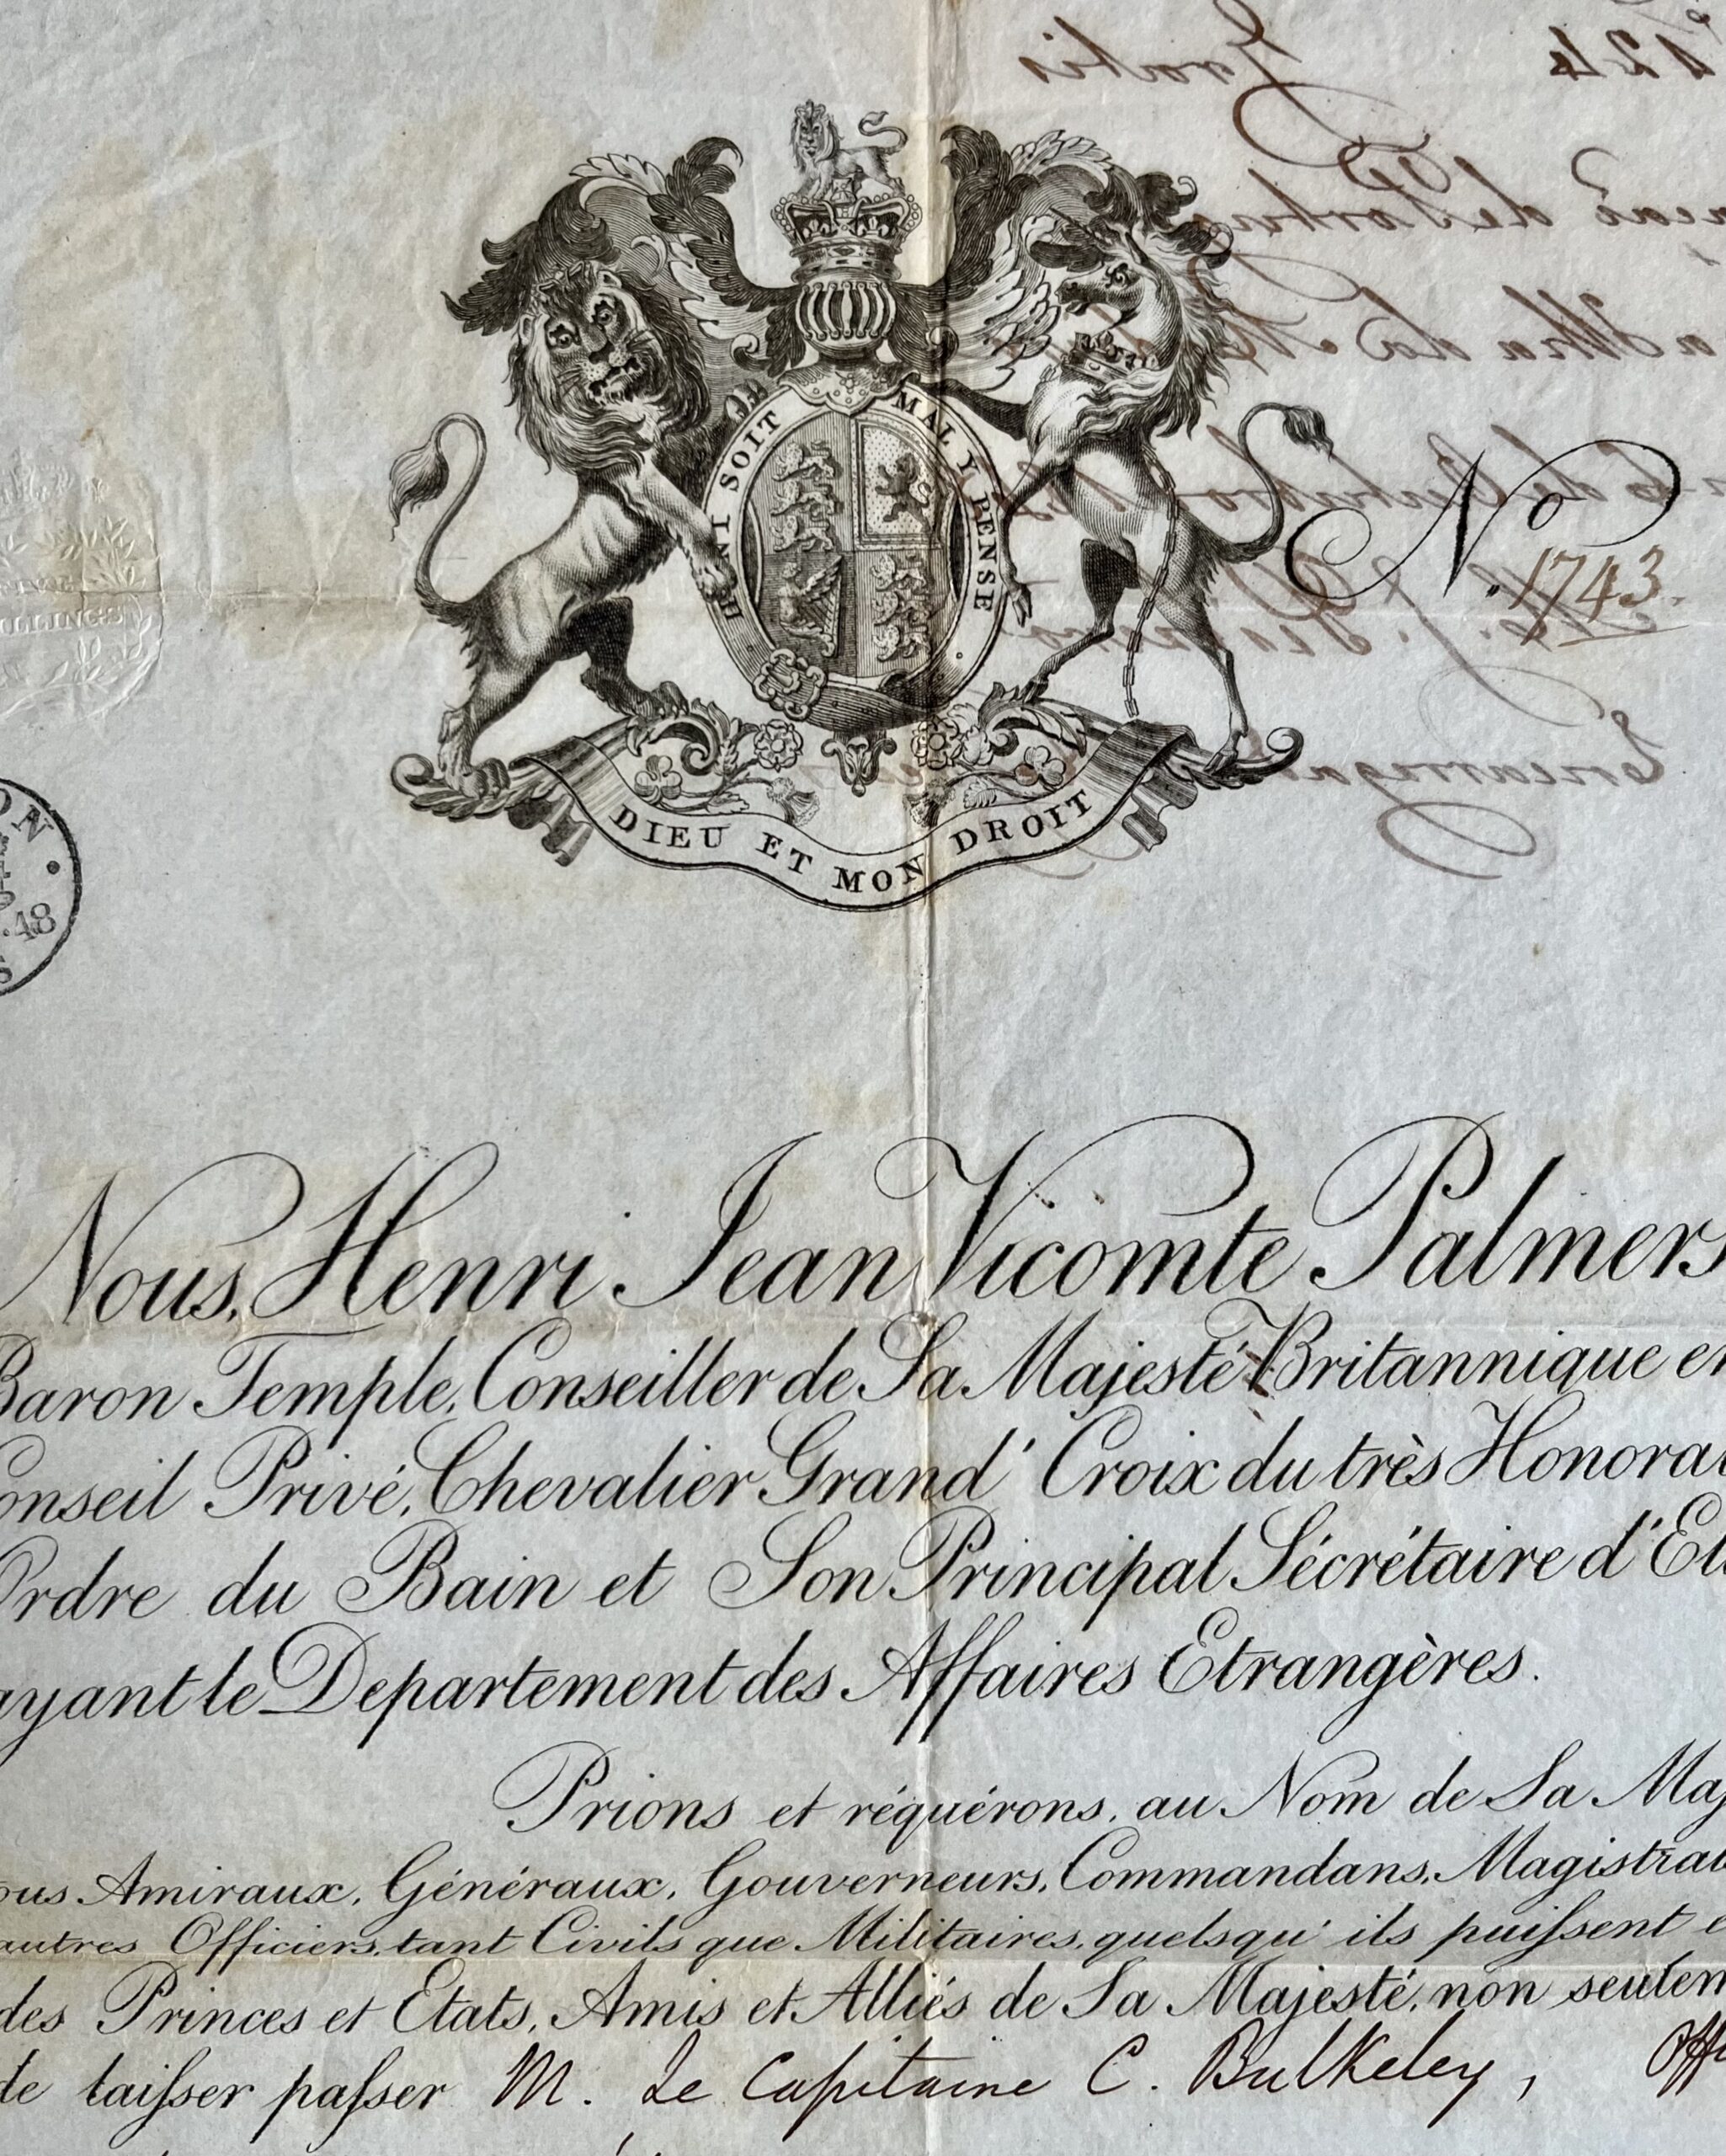 124 Gratis
de Portu
No. 1743.
HONI SOIT MAL Y PENSE
DIEU ET MON DROIT
ILLINGS
ON
.48
S
Nous, Henri Jean Vicomte Palmers
Baron Temple, Conseiller de Sa Majesté Britannique en
onseil Privé, Chevalier Grand' Croix du très Honora
Ordre du Bain et Son Principal Sécrétaire d'Eta
ayant le Departement des Affaires Etrangères.
Prions et réquérons, au Nom de Sa Maj
ous Amiraux, Généraux, Gouverneurs, Commandans, Magistrau
autres Officiers, tant Civils que Militaires, quelsqu' ils puissent e
des Princes et Etats, Amis et Alliés de Sa Majesté, non seulem
de laisser passer M. Le Capitaine C. Bulkeley, Offi